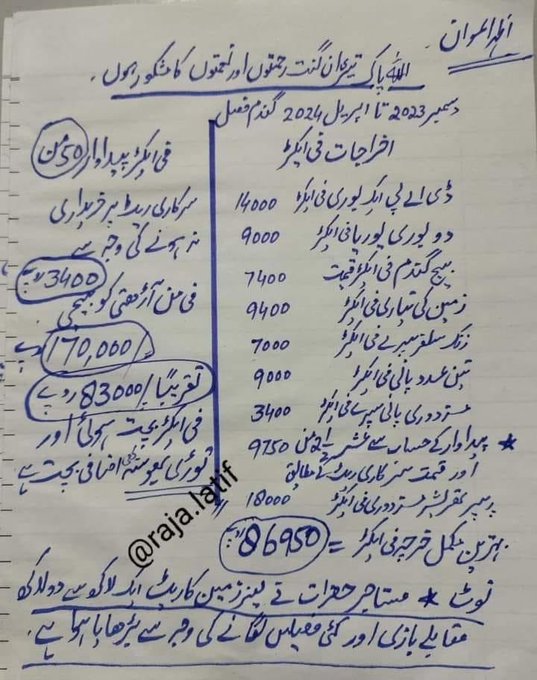 اظہر اعوان
اللہ پاک تیری ان گنت رحمتوں اور نعمتوں کا مشکور ہوں.
دسمبر 2023 تا اپریل 2024 گندم فصل
اخراجات فی ایکڑ
ڈی اے پی ایک بوری فی ایکڑ 14000
دو بوری یوریا فی ایکڑ 9000
بیج گندم فی ایکڑ قیمت 7400
زمین کی تیاری فی ایکڑ 9400
زنک سلفر سپرے فی ایکڑ 7000
تین عدد پانی فی ایکڑ 9000
مزدوری پانی سپرے فی ایکڑ 3400
* پیداوار کے حساب سے عشر 2½ من 9750
اور قیمت سرکاری ریٹ کے مطابق
ہارویسٹر تھریشر مزدوری فی ایکڑ 18000
بہترین مکمل خرچہ فی ایکڑ = 86950 روپے
فی ایکڑ پیداوار 50 من
سرکاری ریٹ پر خریداری
نہ ہونے کی وجہ سے
3400 روپے
فی من آڑھتی کو بیچی
170,000/ روپے
تقریباً /83000 روپے
فی ایکڑ بچت ہوئی اور
توڑی بھوسہ اضافی بچت ہے
@raja.latif
نوٹ * مستاجر حضرات نے لینز زمین کا ریٹ ایک لاکھ سے دو لاکھ
مقابلے بازی اور کئی فصلیں لگانے کی وجہ سے بڑھایا ہوا ہے.